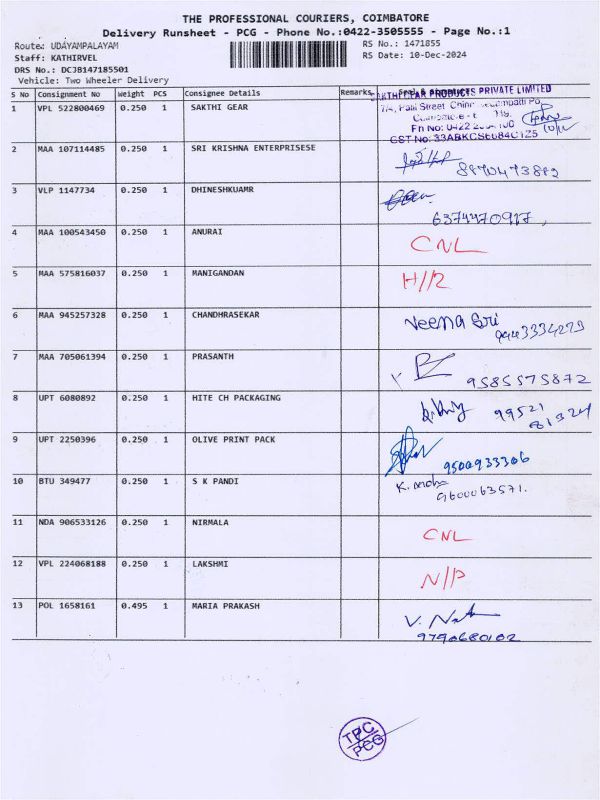 THE PROFESSIONAL COURIERS, COIMBATORE
Delivery Runsheet - PCG - Phone No.:0422-3505555 - Page No.:1
Route: UDAYAMPALAYAM RS No.: 1471855
Staff: KATHIRVEL RS Date: 10-Dec-2024
DRS No.: DCJB147185501
Vehicle: Two Wheeler Delivery
S No Consignment No Weight PCS Consignee Details Remarks
1 VPL 522800469 0.250 1 SAKTHI GEAR
PRODUCTS PRIVATE LIMITED
Street
GST No: 33ABKCS
2 MAA 107114485 0.250 1 SRI KRISHNA ENTERPRISESE
3 VLP 1147734 0.250 1 DHINESHKUAMR
6374470917,
4 MAA 100543450 0.250 1 ANURAI CNL
5 MAA 575816037 0.250 1 MANIGANDAN
6 MAA 945257328 0.250 1 CHANDHRASEKAR Veena Sri
7 MAA 705061394 0.250 1 PRASANTH
9585575872
8 UPT 6080892 0.250 1 HITE CH PACKAGING 99521
81324
9 UPT 2250396 0.250 1 OLIVE PRINT PACK
9500933306
10 BTU 349477 0.250 1 S K PANDI
9600063571.
11 NDA 906533126 0.250 1 NIRMALA CNL
12 VPL 224068188 0.250 1 LAKSHMI N/P
13 POL 1658161 0.495 1 MARIA PRAKASH
9790680102
TPC
PCG